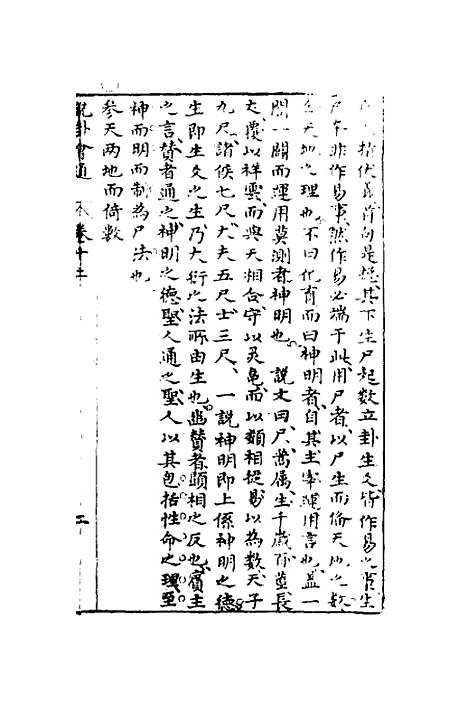 指伏羲首句是總其下生尸起數立卦生爻皆作易之事生
尸本非作易事然作易必端于此用尸者以尸生而倫天地之數
天地之理也不曰化育而曰神明者自其主宰運用言也蓋一
閤一闢而運用莫測者神明也說文曰尸蒿属生千歲百莖長
丈覆以祥雲而與天相合守以灵龜而以類相從易以為數天子
九尺諸侯七尺大夫五尺士三尺一說神明即上係神明之德
生即生爻之生乃大衍之法所由生也幽賛者顯相之反也賓主
之言賛者通之神明之德聖人通之聖人以其包括性命之理至
神而明而制為尸法也
参天两地而倚數
說卦會通 卷十二 二